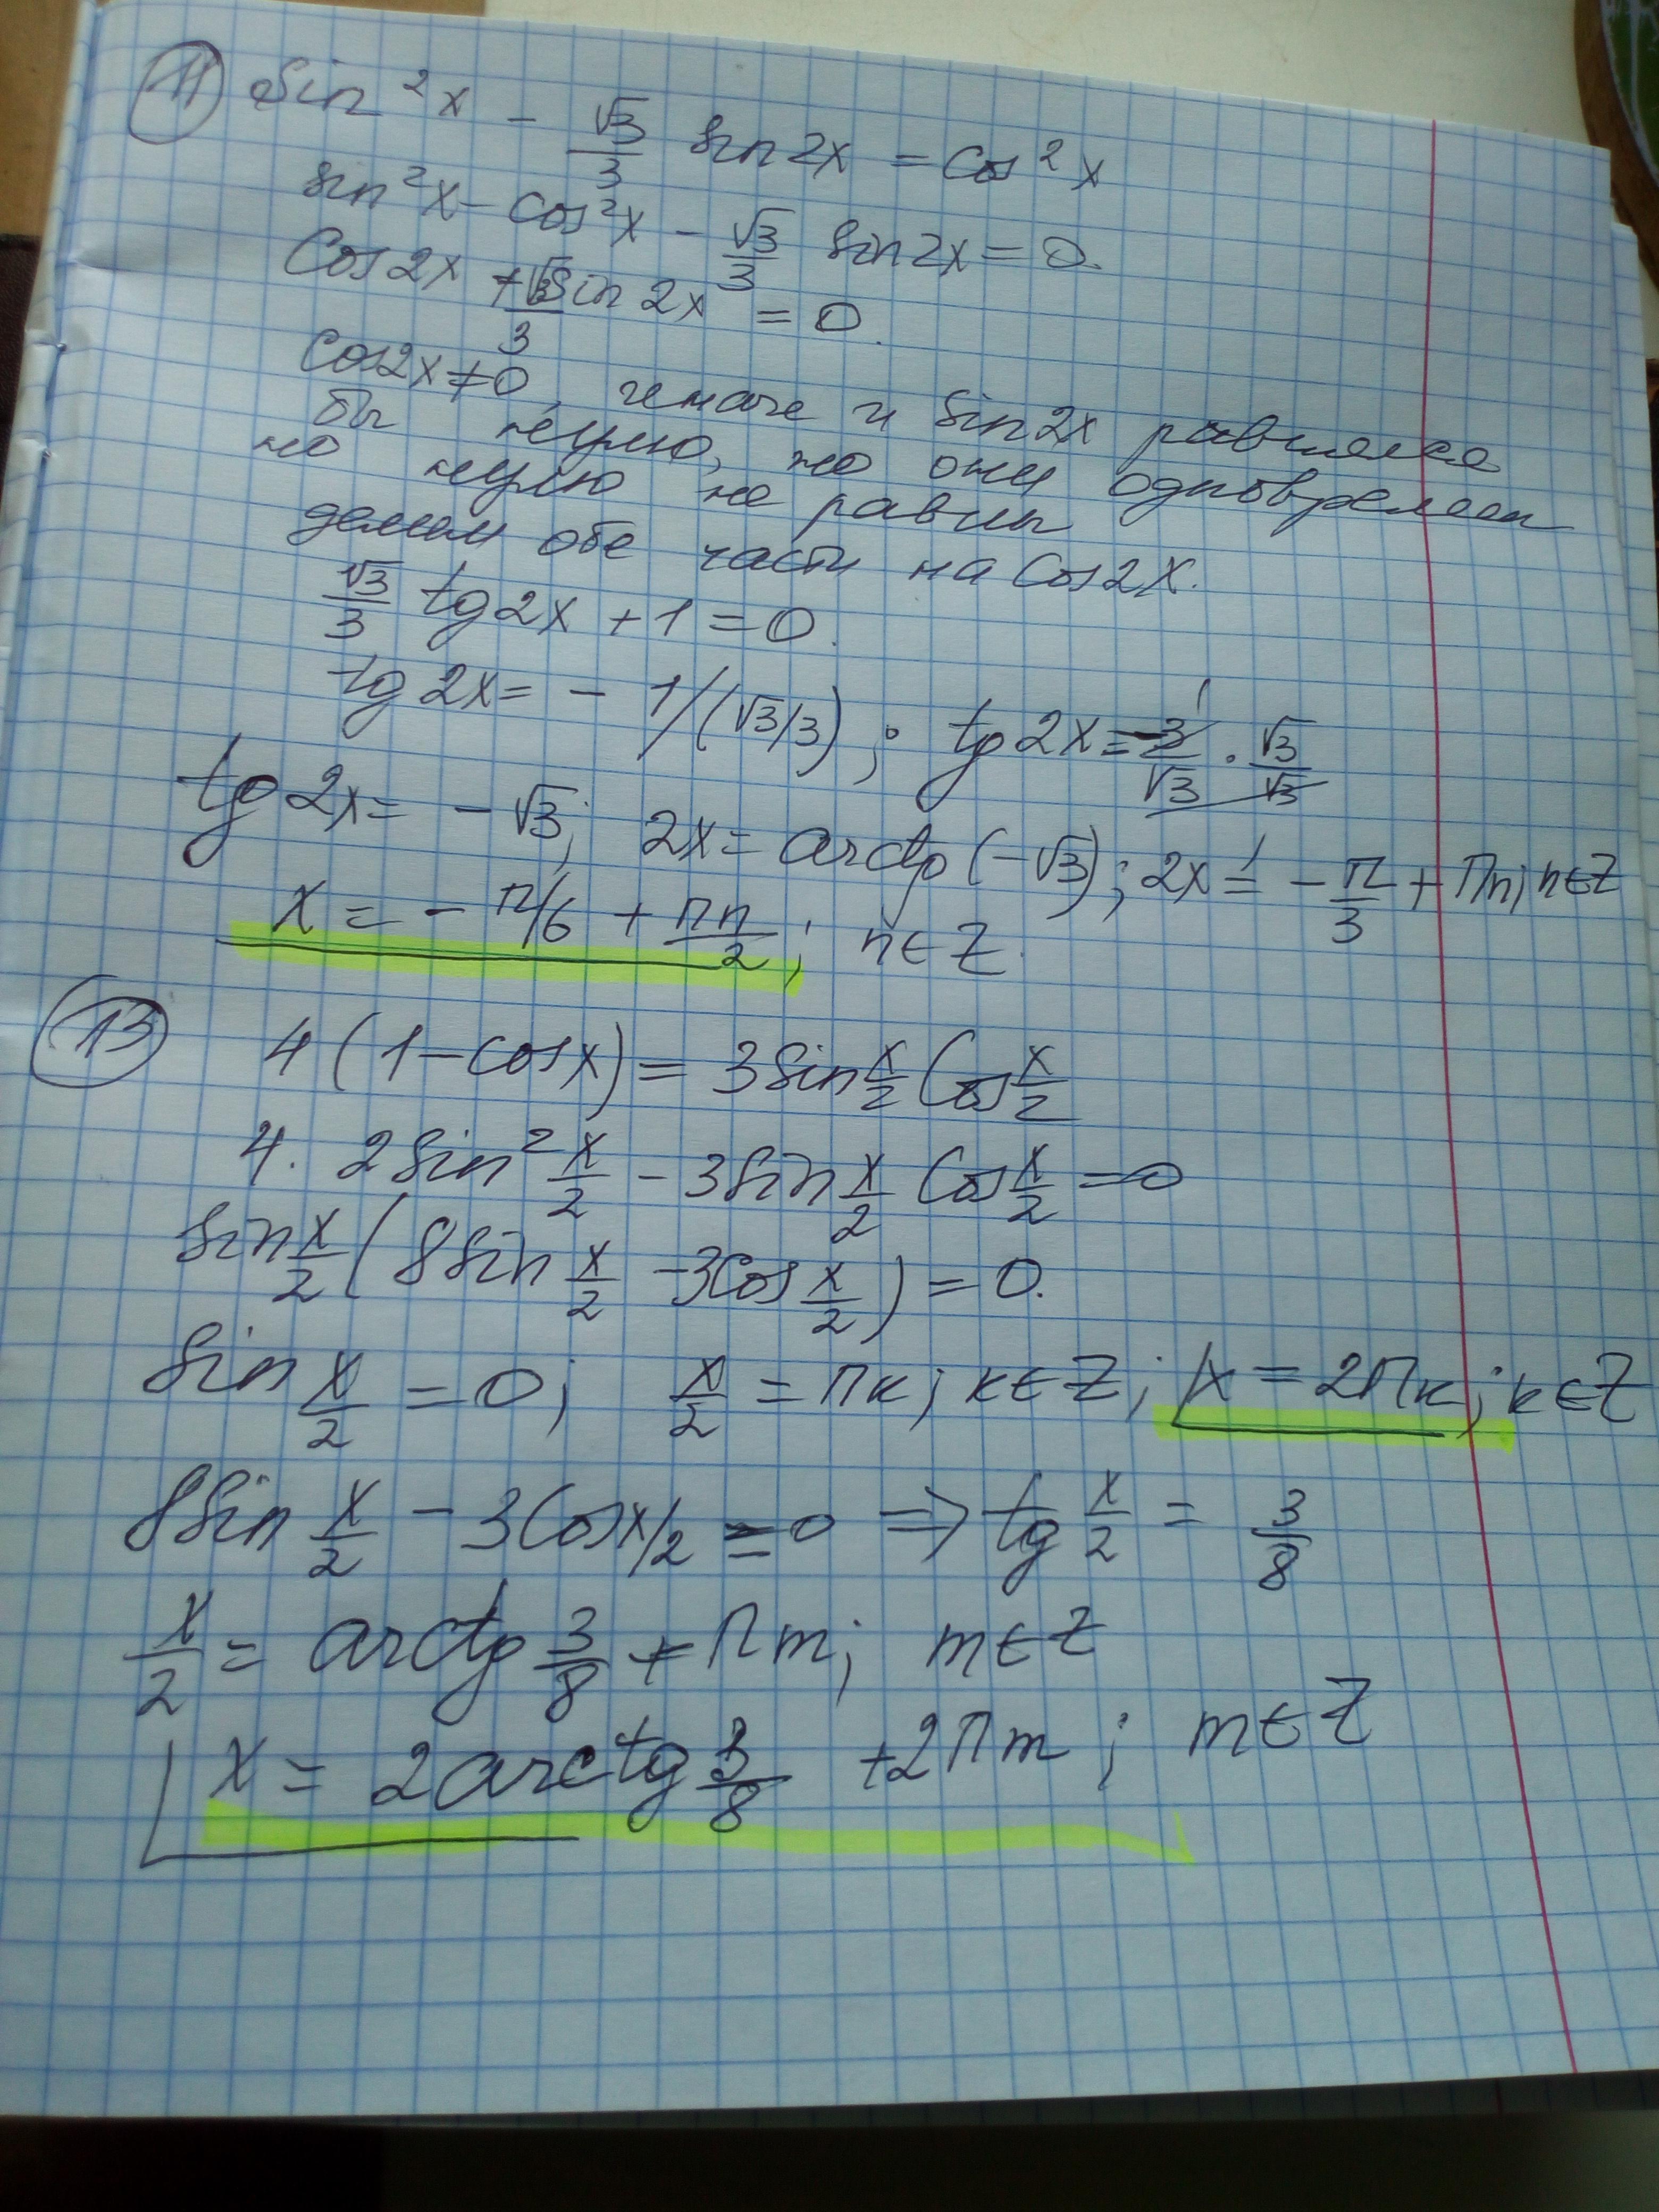 11 Sin²x - √3/3 sin2x = Cos²x
sin²x - Cos²x - √3/3 sin2x = 0.
Cos2x + √3/3 Sin2x = 0.
Cos2x ≠ 0, иначе и Sin2x равнялся
бы нулю, но они одновремен
но нулю не равны
делим обе части на Cos2x.
√3/3 tg2x + 1 = 0.
tg2x = - 1/(√3/3); tg2x = -3/√3 · √3/√3
tg2x = -√3; 2x = arctg(-√3); 2x = -π/3 + πn; n∈Z
x = -π/6 + πn/2; n∈Z.
13 4(1-cosx) = 3Sin x/2 Cos x/2
4. 2Sin² x/2 - 3Sin x/2 Cos x/2 = 0
Sin x/2 (8Sin x/2 - 3Cos x/2) = 0.
Sin x/2 = 0; x/2 = πk; k∈Z; x = 2πk; k∈Z
8Sin x/2 - 3Cos x/2 = 0 => tg x/2 = 3/8
x/2 = arctg 3/8 + πm; m∈Z
x = 2arctg 3/8 + 2πm; m∈Z